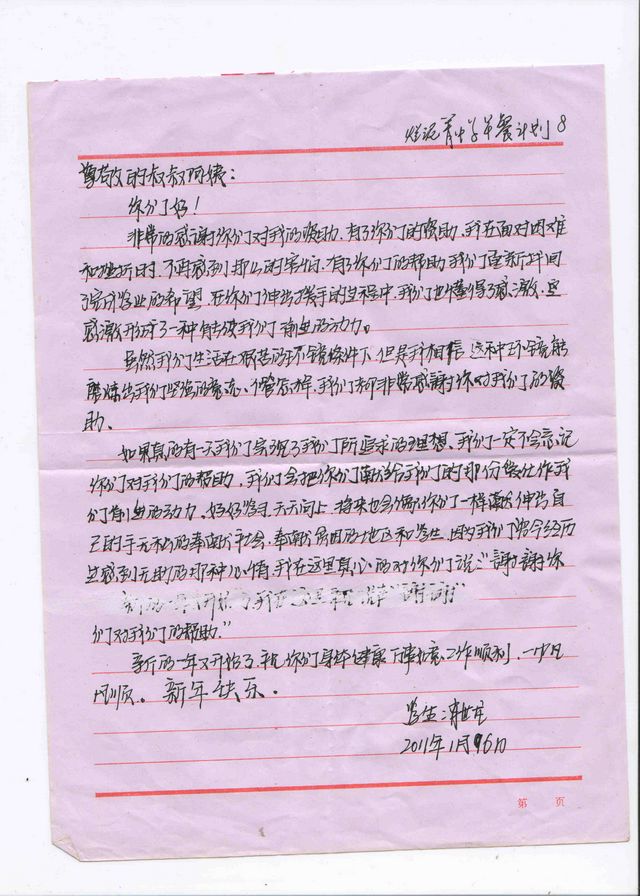 烂泥箐中学早餐计划 8
尊敬的叔叔阿姨：
你们好！
非常的感谢你们对我的资助，有了你们的资助，我在面对困难
和挫折时，不再感到那么的害怕，有了你们的帮助我们重新找回
了完成学业的希望，在你们伸出援手的过程中，我们也懂得了感激，
感激形成了一种能使我们前进的动力。
虽然我们生活在艰苦的环境条件下，但是我相信，这种环境能
磨炼出我们坚强的意志，不管怎样，我们都非常感谢你对我们的资
助。
如果真的有一天我们实现了我们所追求的理想，我们一定不会忘记
你们对我们的帮助，我们会把你们献给我们的那份爱化作我
们前进的动力，好好学习，天天向上，将来也会像你们一样伸出自
己的手无私的奉献社会，奉献贫困的地区和学生，因为我们曾今经历
过感到无助的那种心情，我在这里真心的对你们说："谢谢你
们对我们的帮助。"
新的一年又开始了，祝你们身体健康，万事如意，工作顺利，一帆
风顺。新年快乐。
学生：
2011年1月16日
第 页